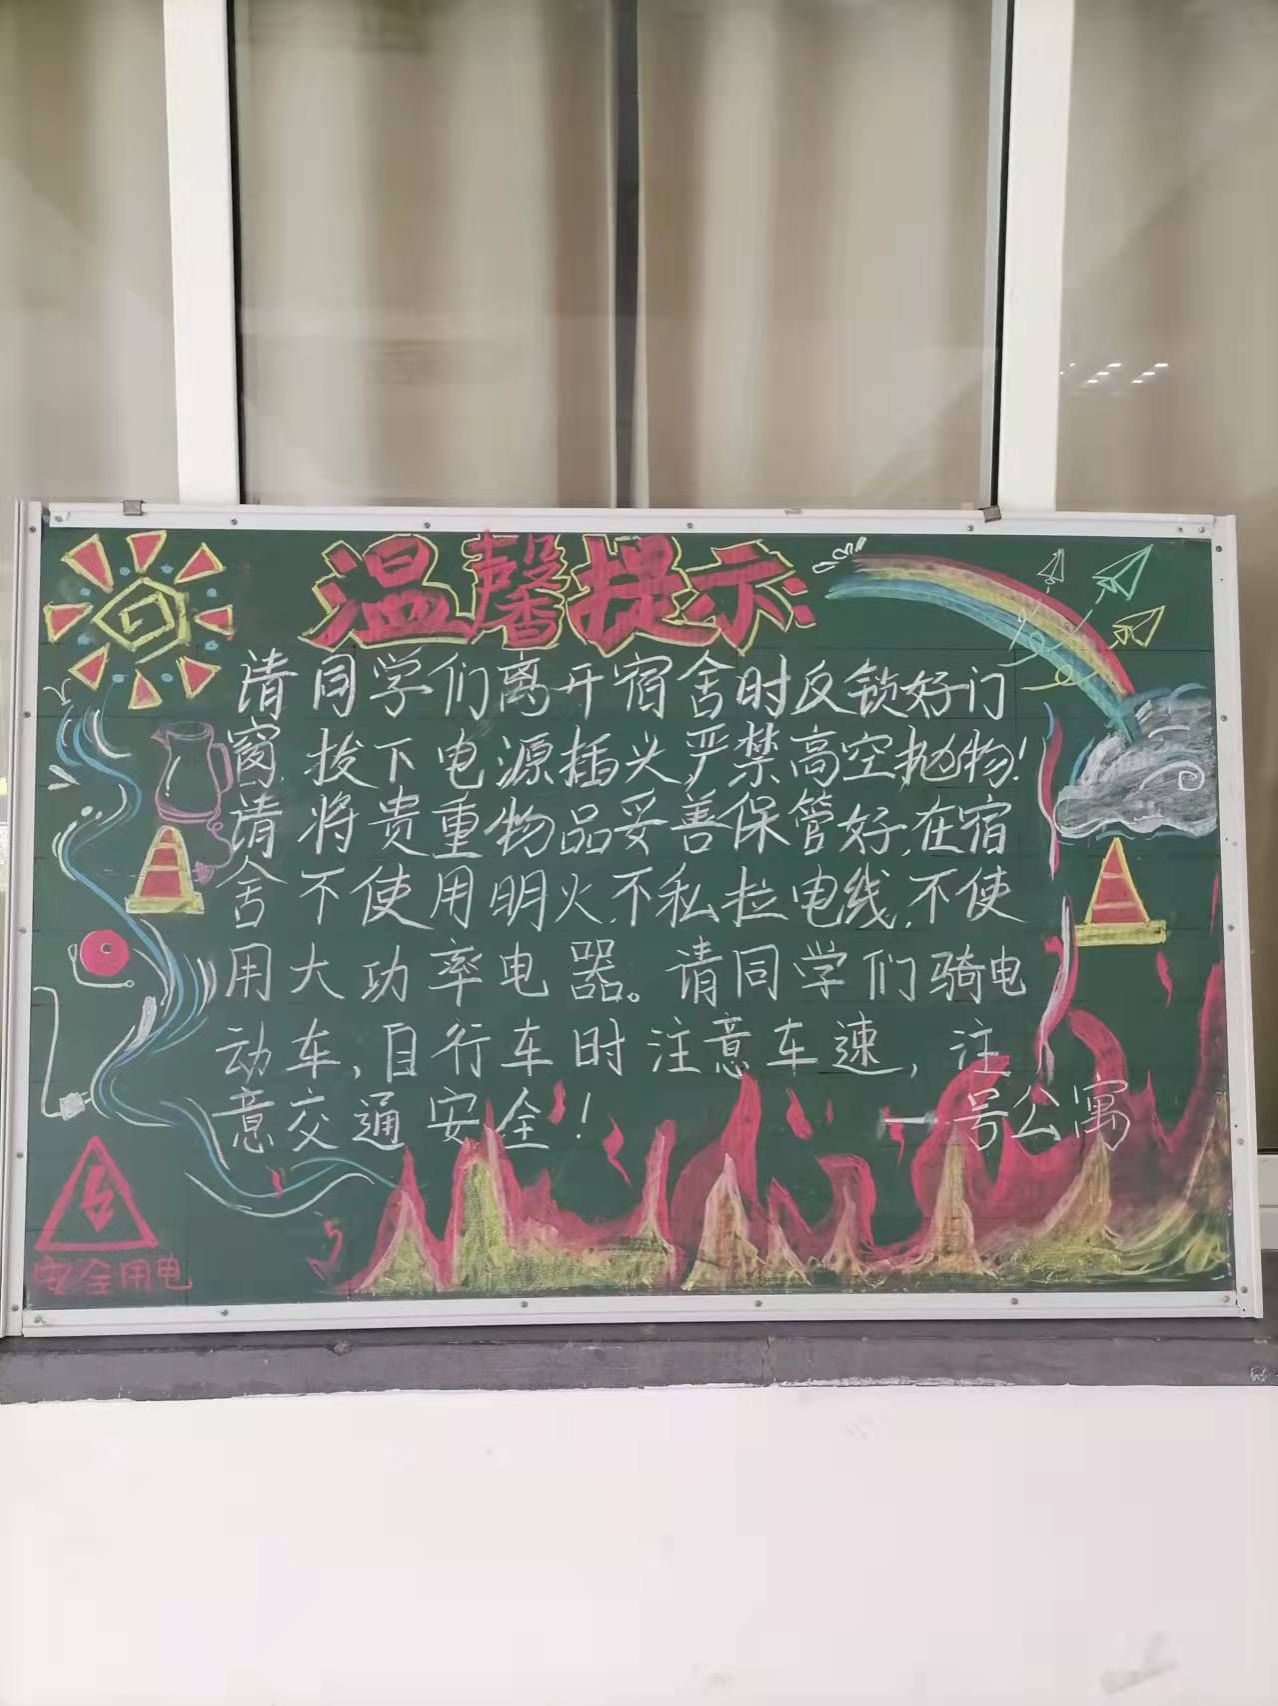 温馨提示:
请同学们离开宿舍时反锁好门
窗,拔下电源插头,严禁高空抛物!
请将贵重物品妥善保管好,在宿
舍不使用明火,不私拉电线,不使
用大功率电器。请同学们骑电
动车,自行车时注意车速,注
意交通安全!
一号公寓
安全用电